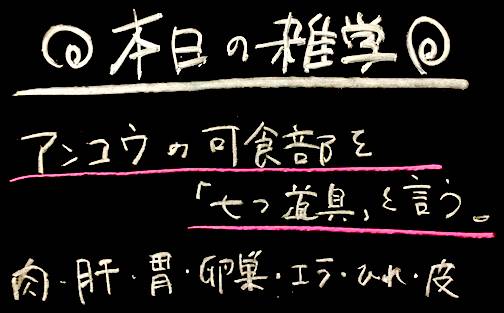 本日の雑学
アンコウの可食部を
「七つ道具」と言う。
肉・肝・胃・卵巣・エラ・ひれ・皮